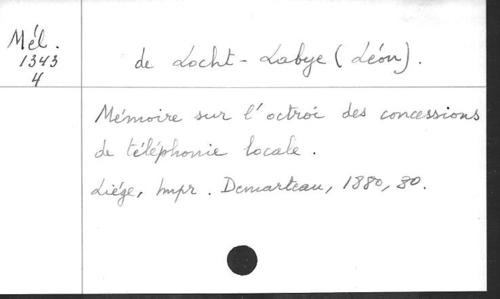 Mél.
1343
4
de Locht-Labye (Léon).
Mémoire sur l'octroi des concessions
de téléphonie locale.
Liége, Impr. Demarteau, 1880, 80.